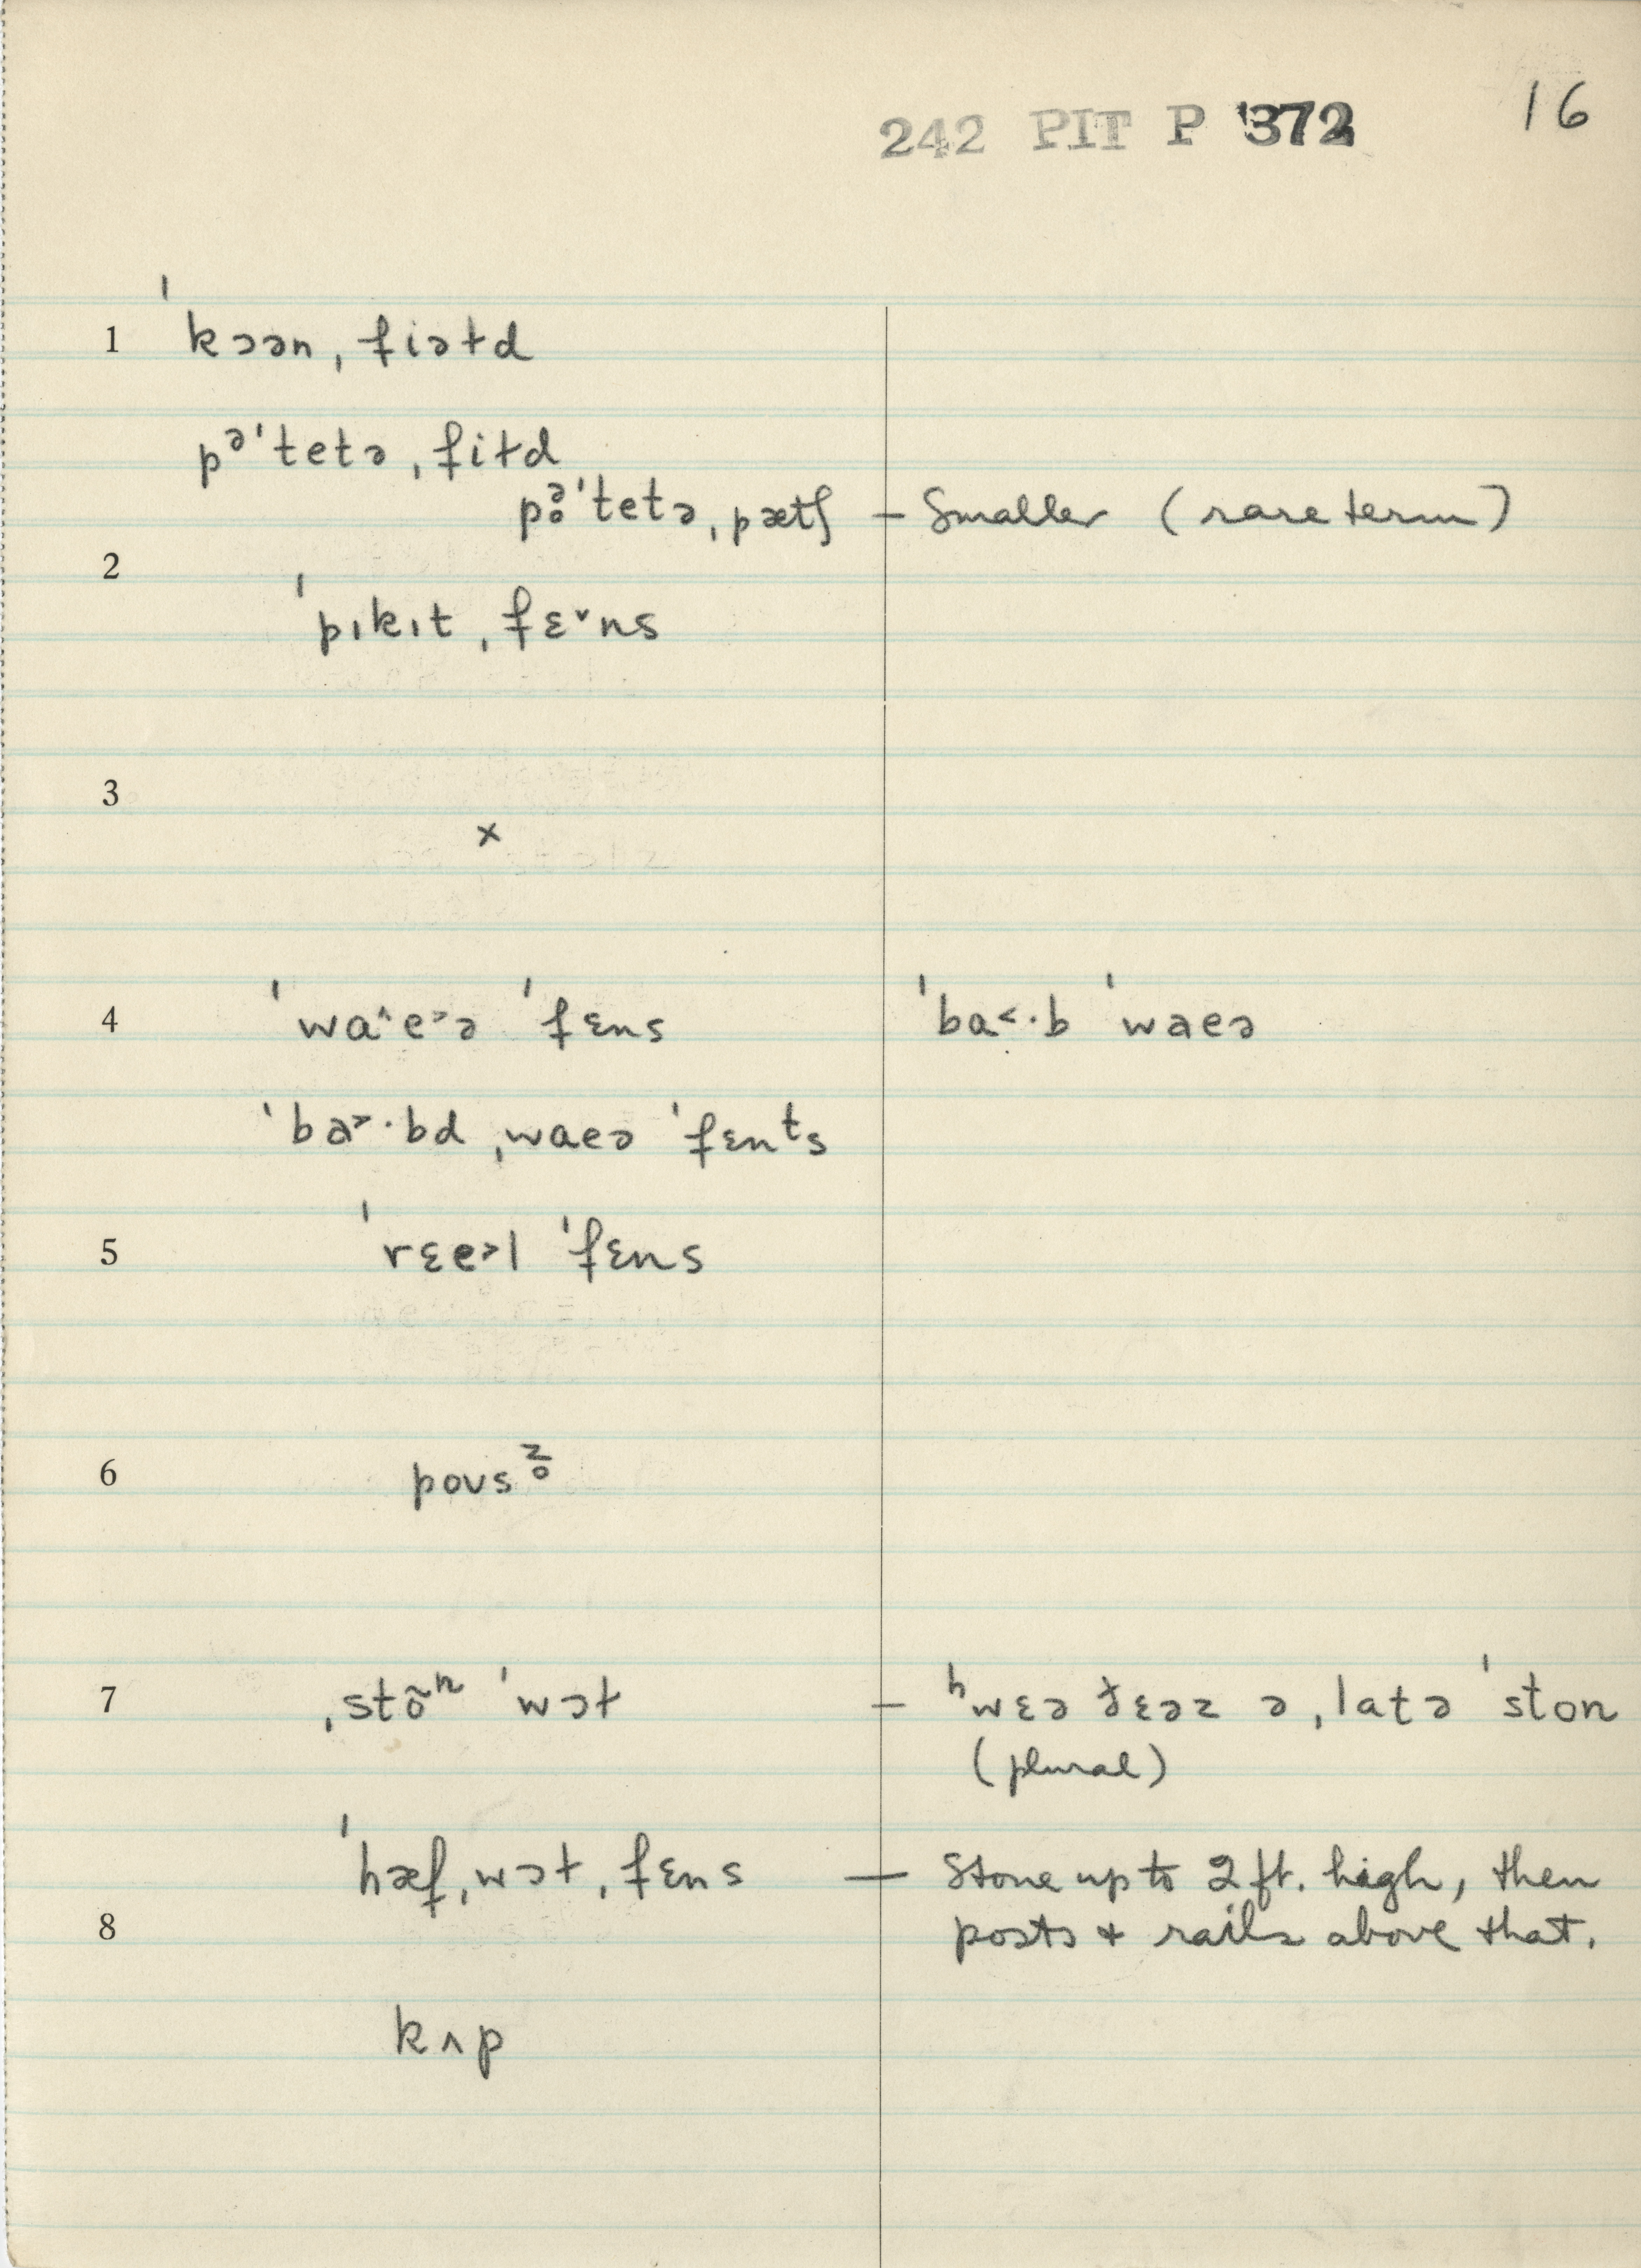 242 PIT P 372 16
1 ˈkɔən ˌfiəɫd
pᵊˈtetə ˌfiɫd
pə̥ˈtetə ˌpætʃ – Smaller (rare term)
2 ˈpɪkɪt ˌfɛ˅ns
3 ×
4 ˈwa˄e˃ə ˈfɛns ˈba˂·b ˈwaeə
ˈba˃·bd ˌwaeə ˈfɛnᵗs
5 ˈrɛe˃l ˈfɛns
6 poʊsᶻ̥
7 ˌstõⁿ ˈwɔɫ – ʰwɛə ðɛəz ə ˌlatə ˈston
(plural)
ˈhæf ˌwɔɫ ˌfɛns – Stone up to 2 ft. high, then
8 posts + rails above that.
kʌp